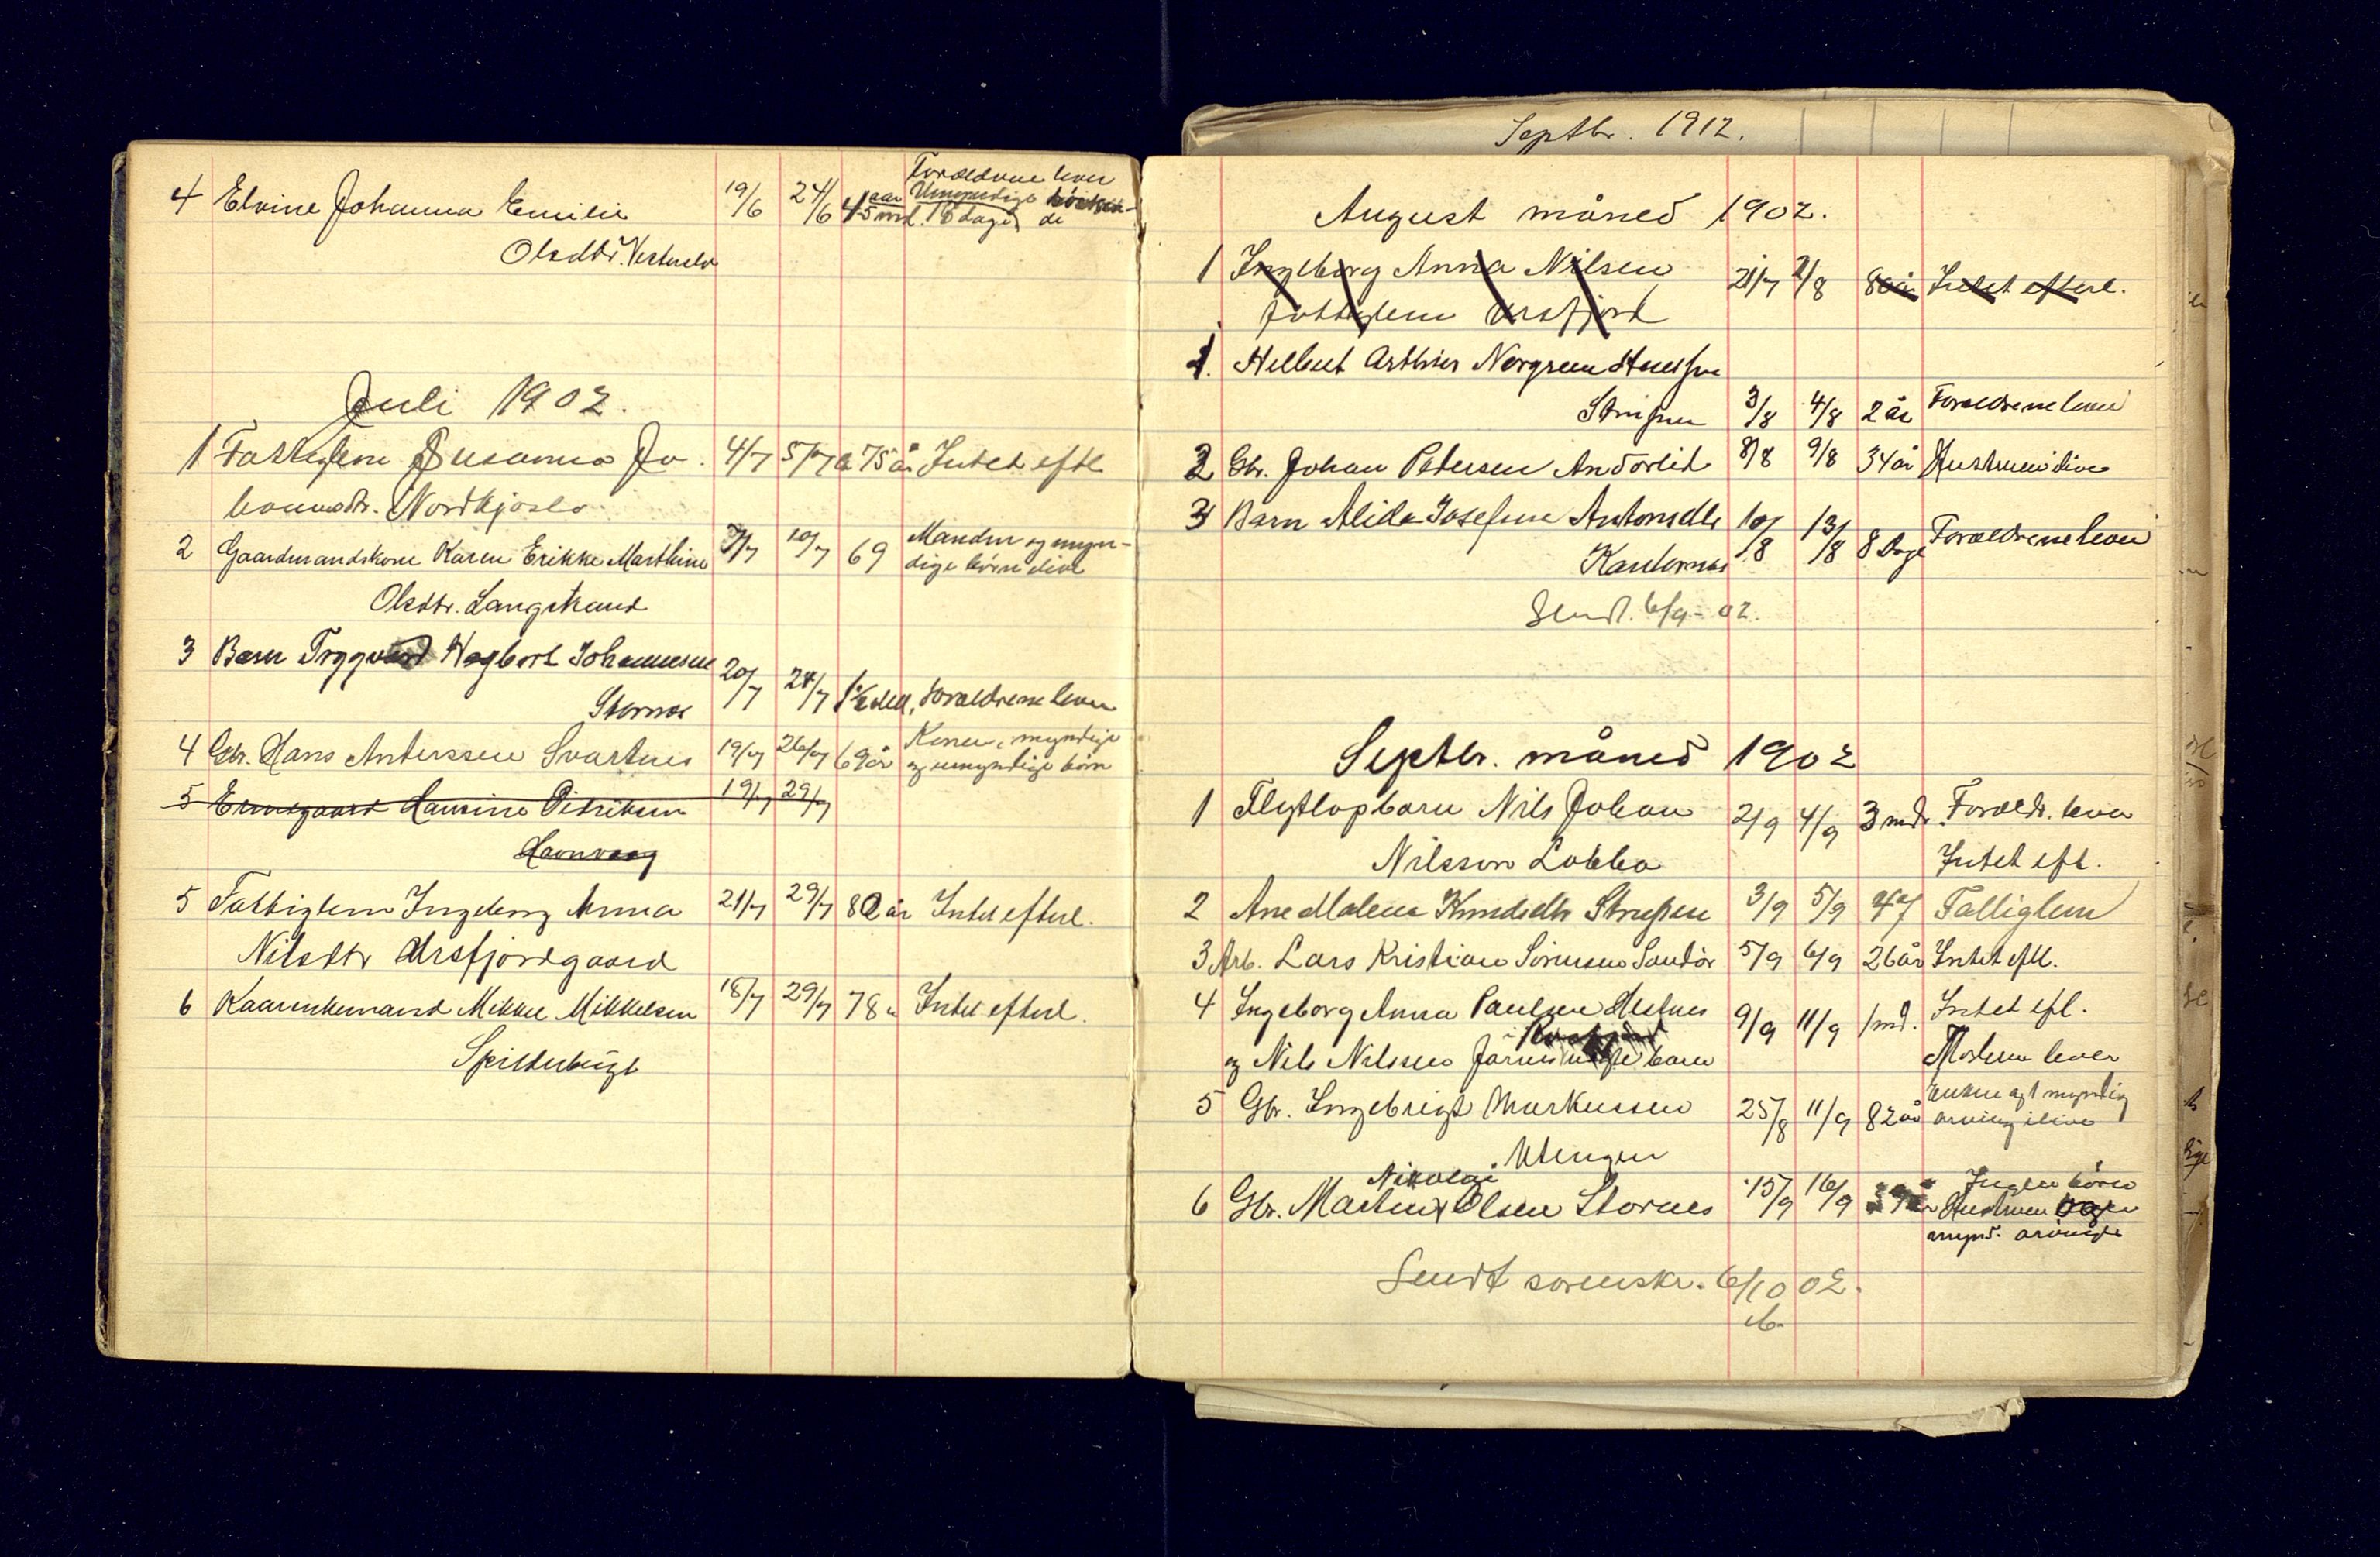 4 Elvine Johanna Emilie 19/6 24/6 Forældrene lever
Olsdtr. 18 dage
Juli 1902.
1 Fattiglem Susanna Jo. 4/7 5/7 75 år Intet eftl
hannsdtr. Nordkjosbo
2 Gaardmandskone Karen Erikke Marthine 7/7 10/7 69 Manden og myn-
dige börn ilive
Olsdtr. Langstrand
3 Barn Tryggvard Hagbart Johannesen 20/7 24/7
Stornes Forældrene lever
4 Gbr. Hans Anderssen Svartnes 19/7 26/7 69 år Konen, myndige
og umyndige börn
5 Hansine Didriksen 19/7 29/7
Havnvaag
5 Fattiglem Ingeborg Anna 21/7 29/7 80 år Intet efterl.
Nilsdtr Arsfjordgaard
6 Kaarenkemand Mikkel Mikkelsen 18/7 29/7 78 " Intet efterl.
Spilderbugt
Septbr. 1912.
August måned 1902.
1 Ingeborg Anna Nilsen 21/7 2/8 80 år Intet efterl.
fattiglem Arsfjord
1. Helbert Arthur Norgreen
3/8 4/8 2 år Forældrene lever
2 Gbr. Johan Petersen Andorlid 8/8 9/8 34 år Hustruen ilive
3 Barn Alida Josefine Antonsdtr 10/8 13/8 8 Dage Forældrene lever
Kantornes
Sendt. 6/9-02.
Septbr. måned 1902
1 Flytlapbarn Nils Johan 2/9 4/9 3 mdr. Forældr. lever
Nilsson Labba Intet eft.
2 Ane Malena Knudsdtr 3/9 5/9 47 Fattiglem
3 Arb. Lars Kristian Sörensen Sandör 5/9 6/9 26 år Intet eftl.
4 Ingeborg Anna Paulsen 9/9 11/9 1 md. Intet efl.
og Nils Nilsens barn Moderen lever
5 Gbr. Ingebrigt Markussen 25/8 11/9 82 år Enken og 1 myndig
arving ilive
Utengen
Nikolai
6 Gbr. Martin Olsen Stornes 15/9 16/9 Ingen börn
Hustruen
mynd. arvinge
Sendt sorenskr. 6/10 02.